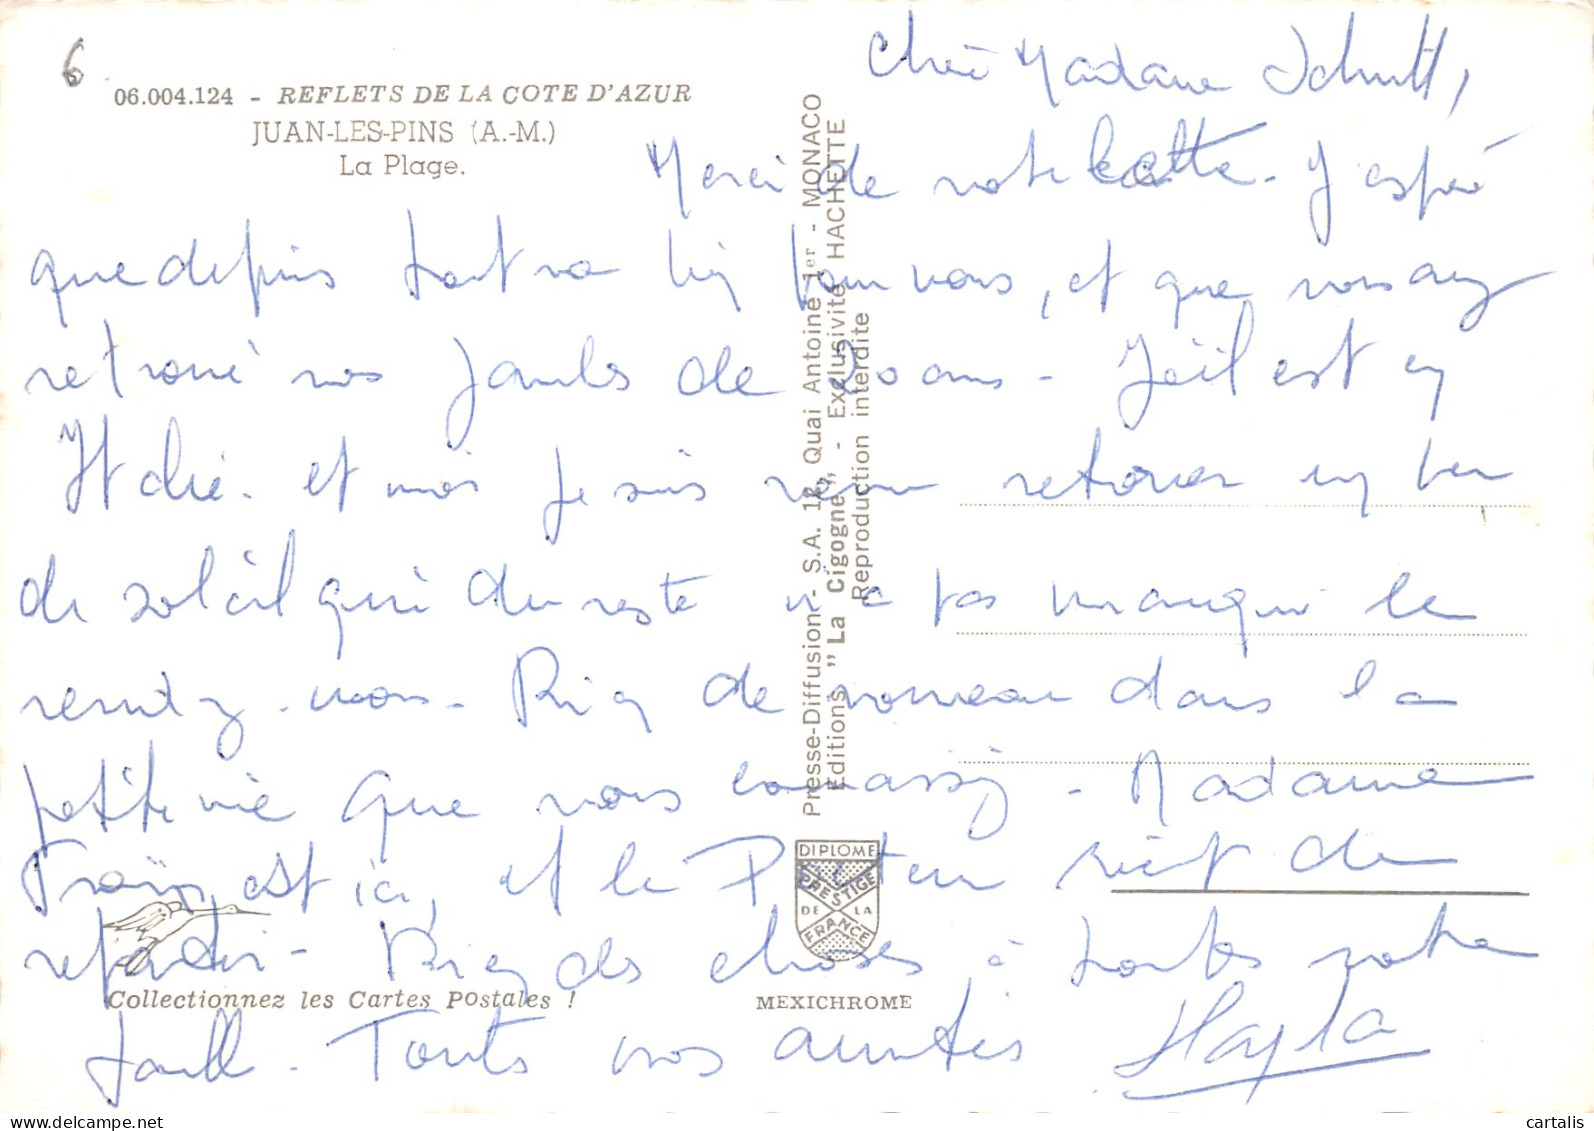 6
06.004.124 - REFLETS DE LA COTE D'AZUR
JUAN-LES-PINS (A.-M.)
La Plage.
Chère Madame Schmitt,
Merci de votre carte. J'espère
que depuis tout va bien pour vous, et que vous avez
retrouvé vos jambes de 20 ans. est en
Italie. et moi je suis venu retrouver un peu
de soleil qui du reste n'a pas manqué le
rendez-vous. Rien de nouveau dans la
petite vie que vous connaissez. Madame
est ici, et le vient de
repartir. Bien des choses à toute votre
famille. Toutes nos amitiés
Presse-Diffusion - S.A. 12, Quai Antoine 1er - MONACO
Editions "La Cigogne" - Exclusivité HACHETTE
Reproduction interdite
DIPLOME
PRESTIGE
DE LA
FRANCE
Collectionnez les Cartes Postales !
MEXICHROME
delcampe.net
cartalis